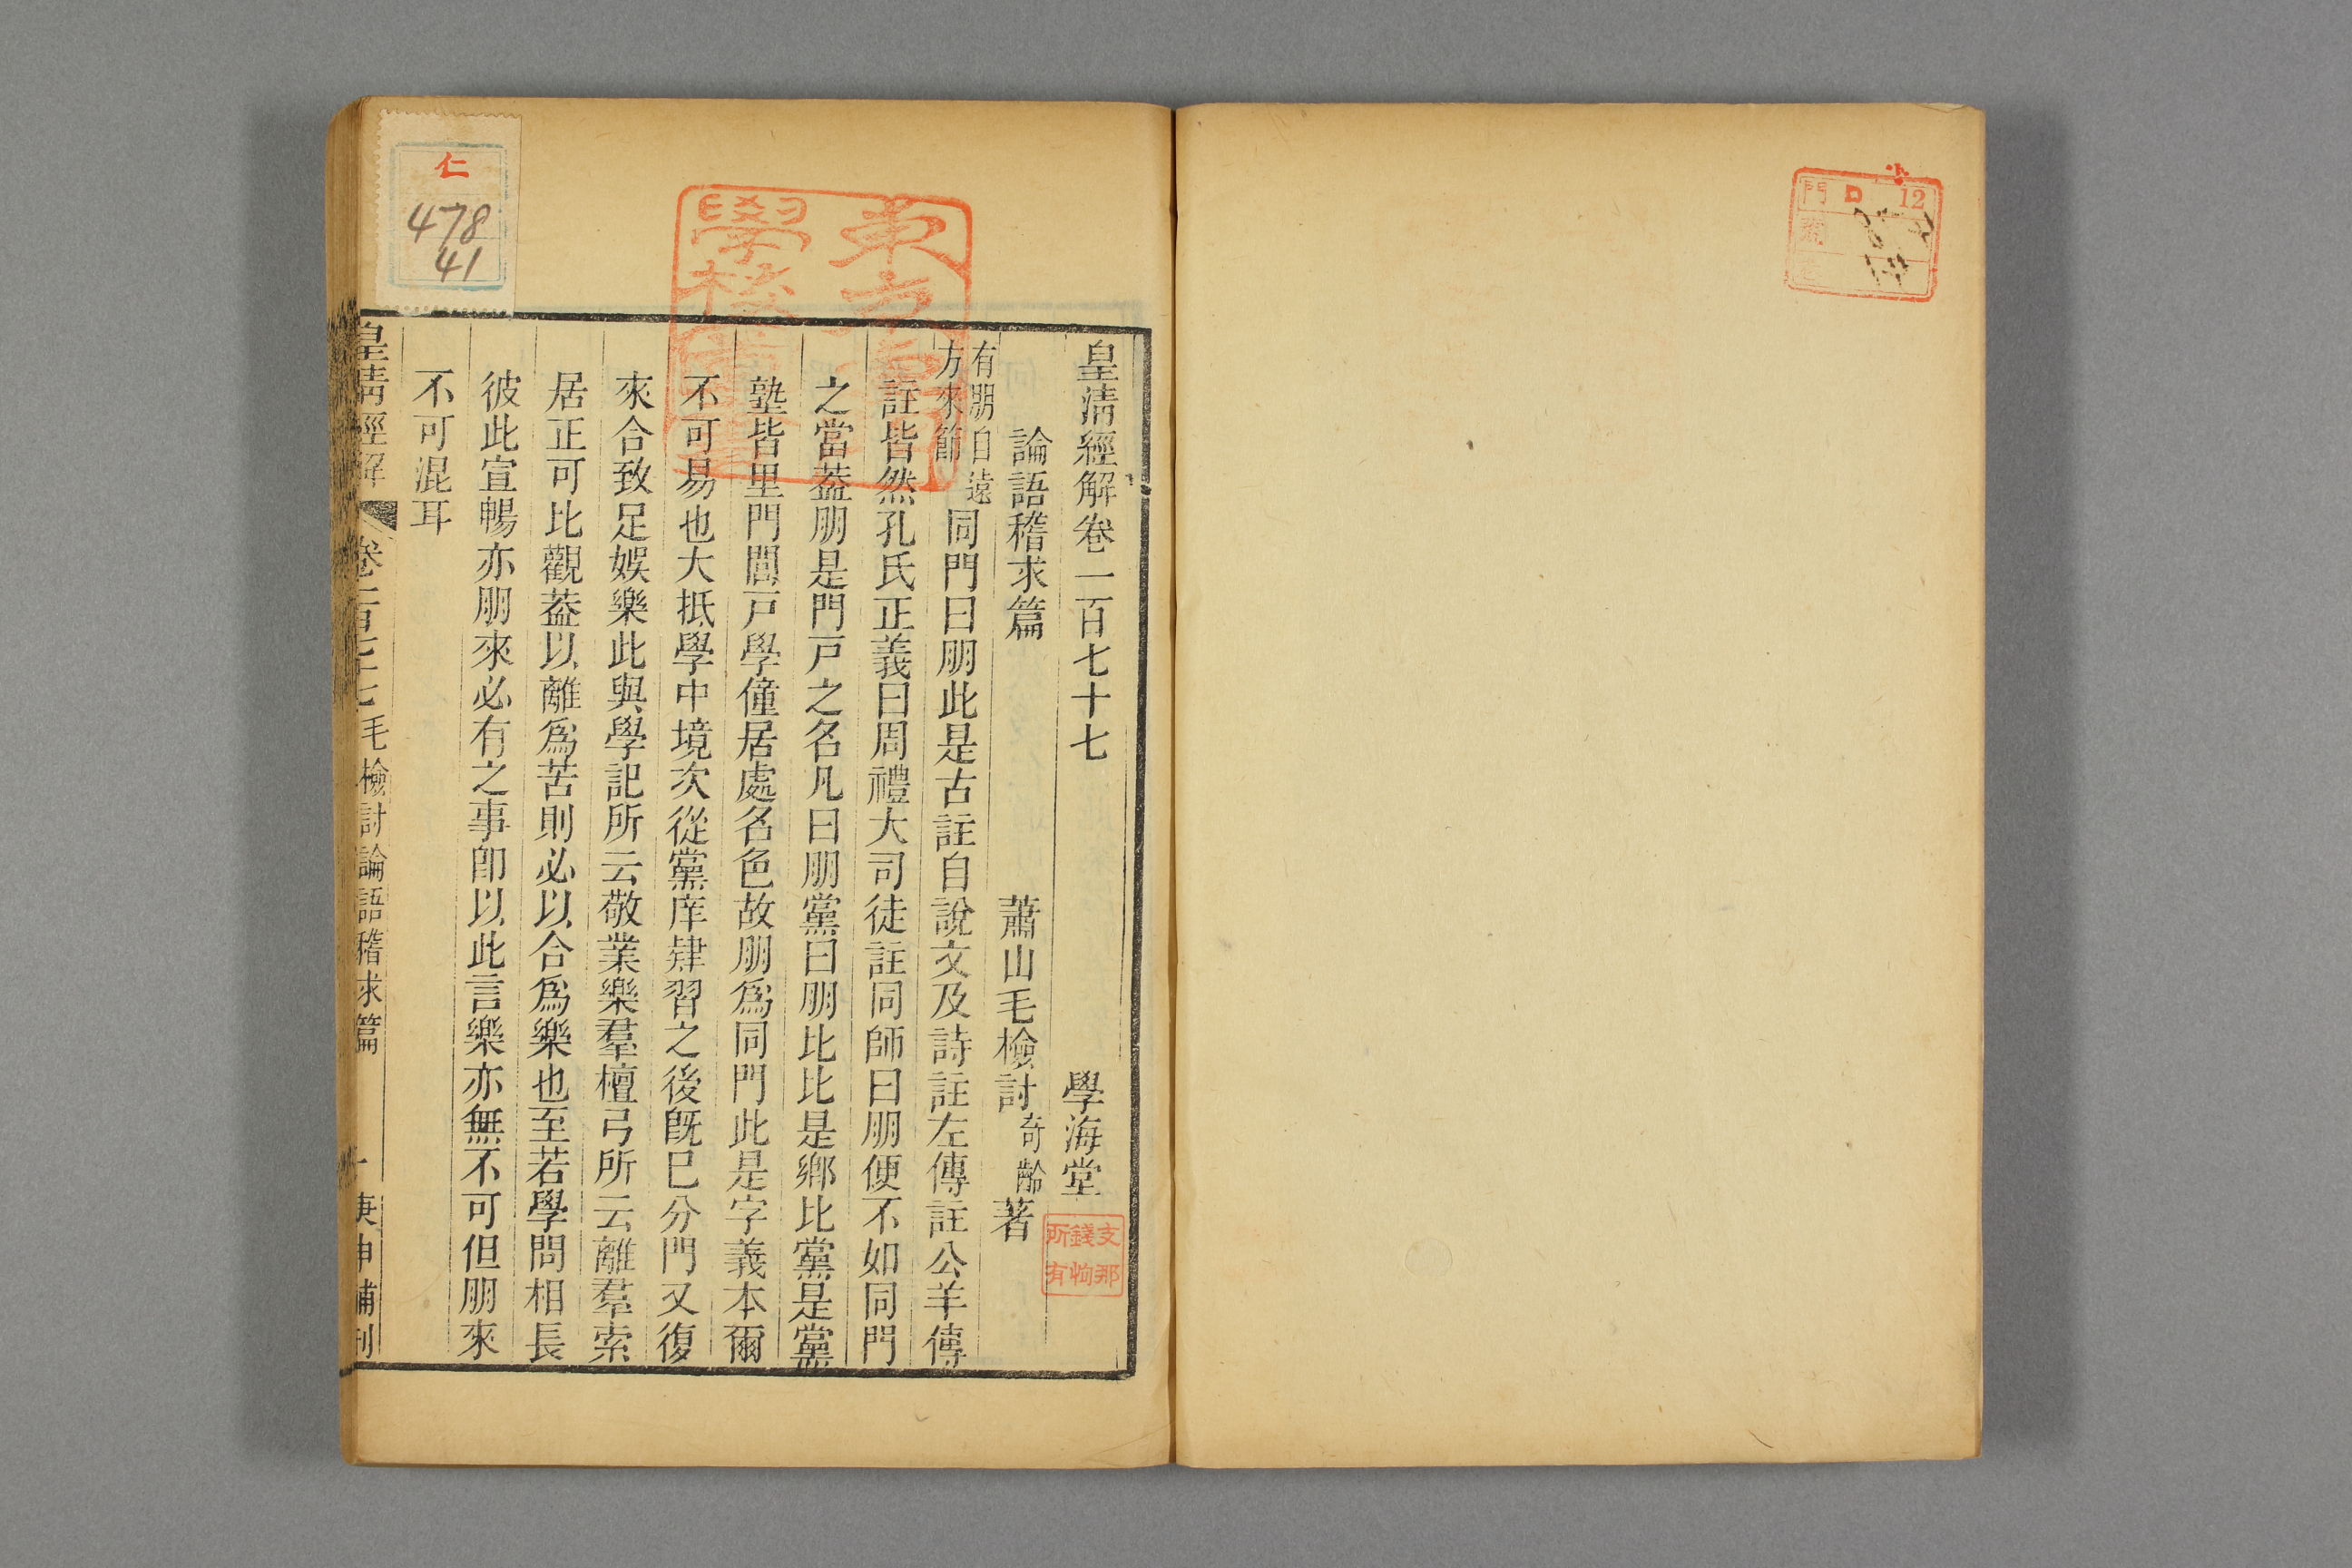 門 D 12
皇清經解卷一百七十七 學海堂
論語稽求篇 蕭山毛檢討奇齡著
有朋自遠方來節 同門曰朋此是古註自說文及詩註左傳註公羊傳
註皆然孔氏正義曰周禮大司徒註同師曰朋便不如同門
之當蓋朋是門戸之名凡曰朋黨曰朋比比是鄉比黨是黨
塾皆里門閭戸學僮居處名色故朋爲同門此是字義本爾
不可易也大抵學中境次從黨庠肄習之後旣已分門又復
來合致足娛樂此與學記所云敬業樂羣檀弓所云離羣索
居正可比觀葢以離爲苦則必以合爲樂也至若學問相長
彼此宣暢亦朋來必有之事卽以此言樂亦無不可但朋來
不可混耳
皇清經解 卷一百七十七 毛檢討論語稽求篇 一 庚申補刊
支那
錢恂
所有
仁
478
41